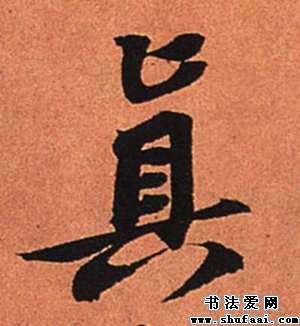 眞
书法爱网
www.shufaai.com